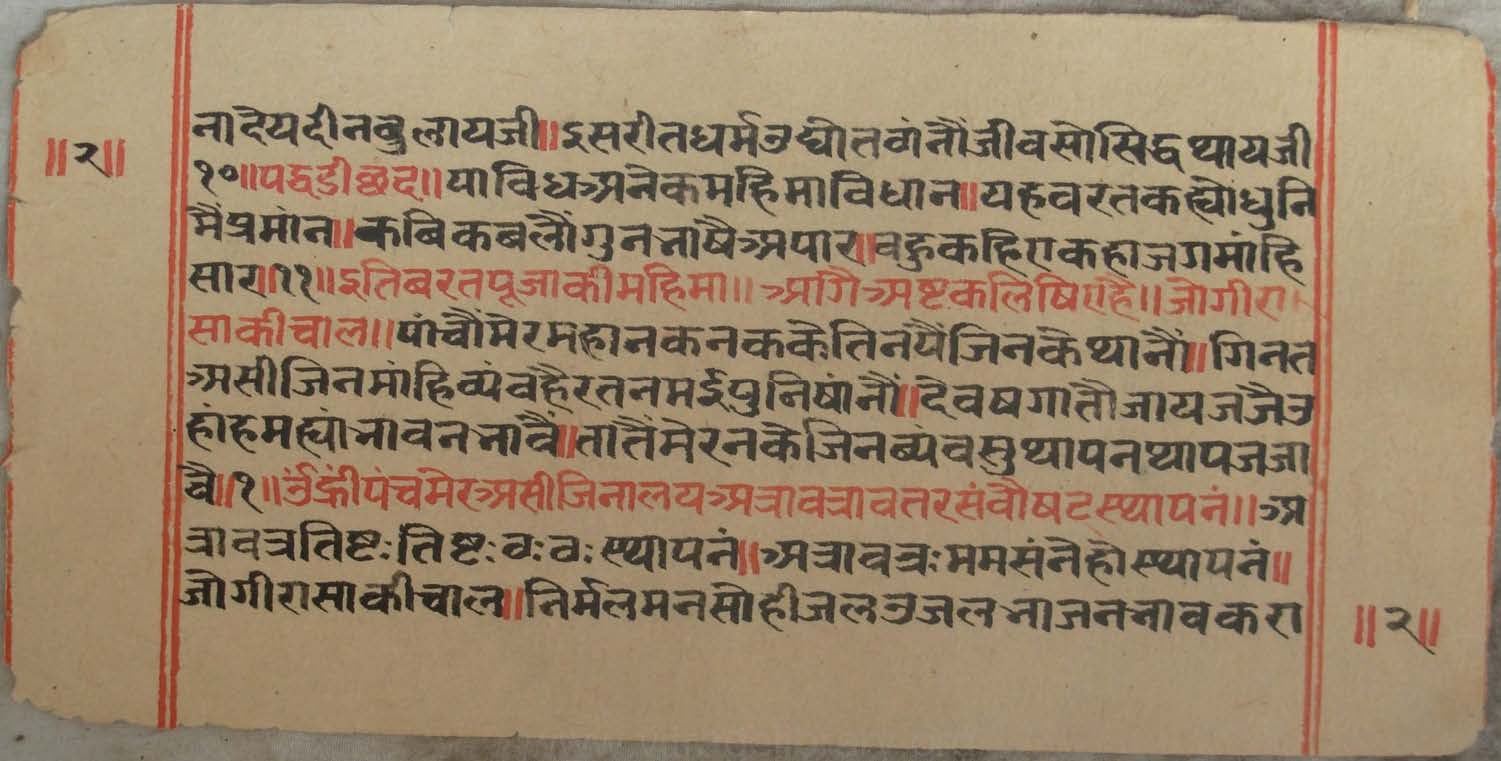 नादेयदीनबुलायजी॥इसरीतधर्मउद्योतवांनौंजीवसोसिद्धथायजी
॥२॥
१०॥पद्धडीछंद॥याविधअनेकमहिमाविधान॥यहवरतकह्योधुनि
मैंप्रमांन॥कबिकबलौंगुनभाषैअपार॥बहुकहिएकहाजगमांहि
सार॥११॥इतिबरतपूजाकीमहिमा॥अगैअष्टकलिषिएहै॥जोगीरा
साकीचाल॥पांचौंमेरमहानकनककेतिनपैंजिनकेथानौं॥गिनत
असीजिनमांहिब्यंवहैरतनमईपुनिषांनौं॥देवषगातौजायजजैउ
हांहमह्यांभावनभावैं॥तातैंमेरनकेजिनब्यंवसुथापनथापजजा
वै॥१॥उंह्रींपंचमेरअसीजिनालयअत्रावत्रावतरसंवौषट्स्थापनं॥अ
त्रावत्रतिष्टःतिष्टःवःवःस्थापनं॥अत्रावत्रःममसंनेहोस्थापनं॥
जोगीरासाकीचाल॥निर्मलमनसोहीजलउजलभाजनभावकरा
॥२॥